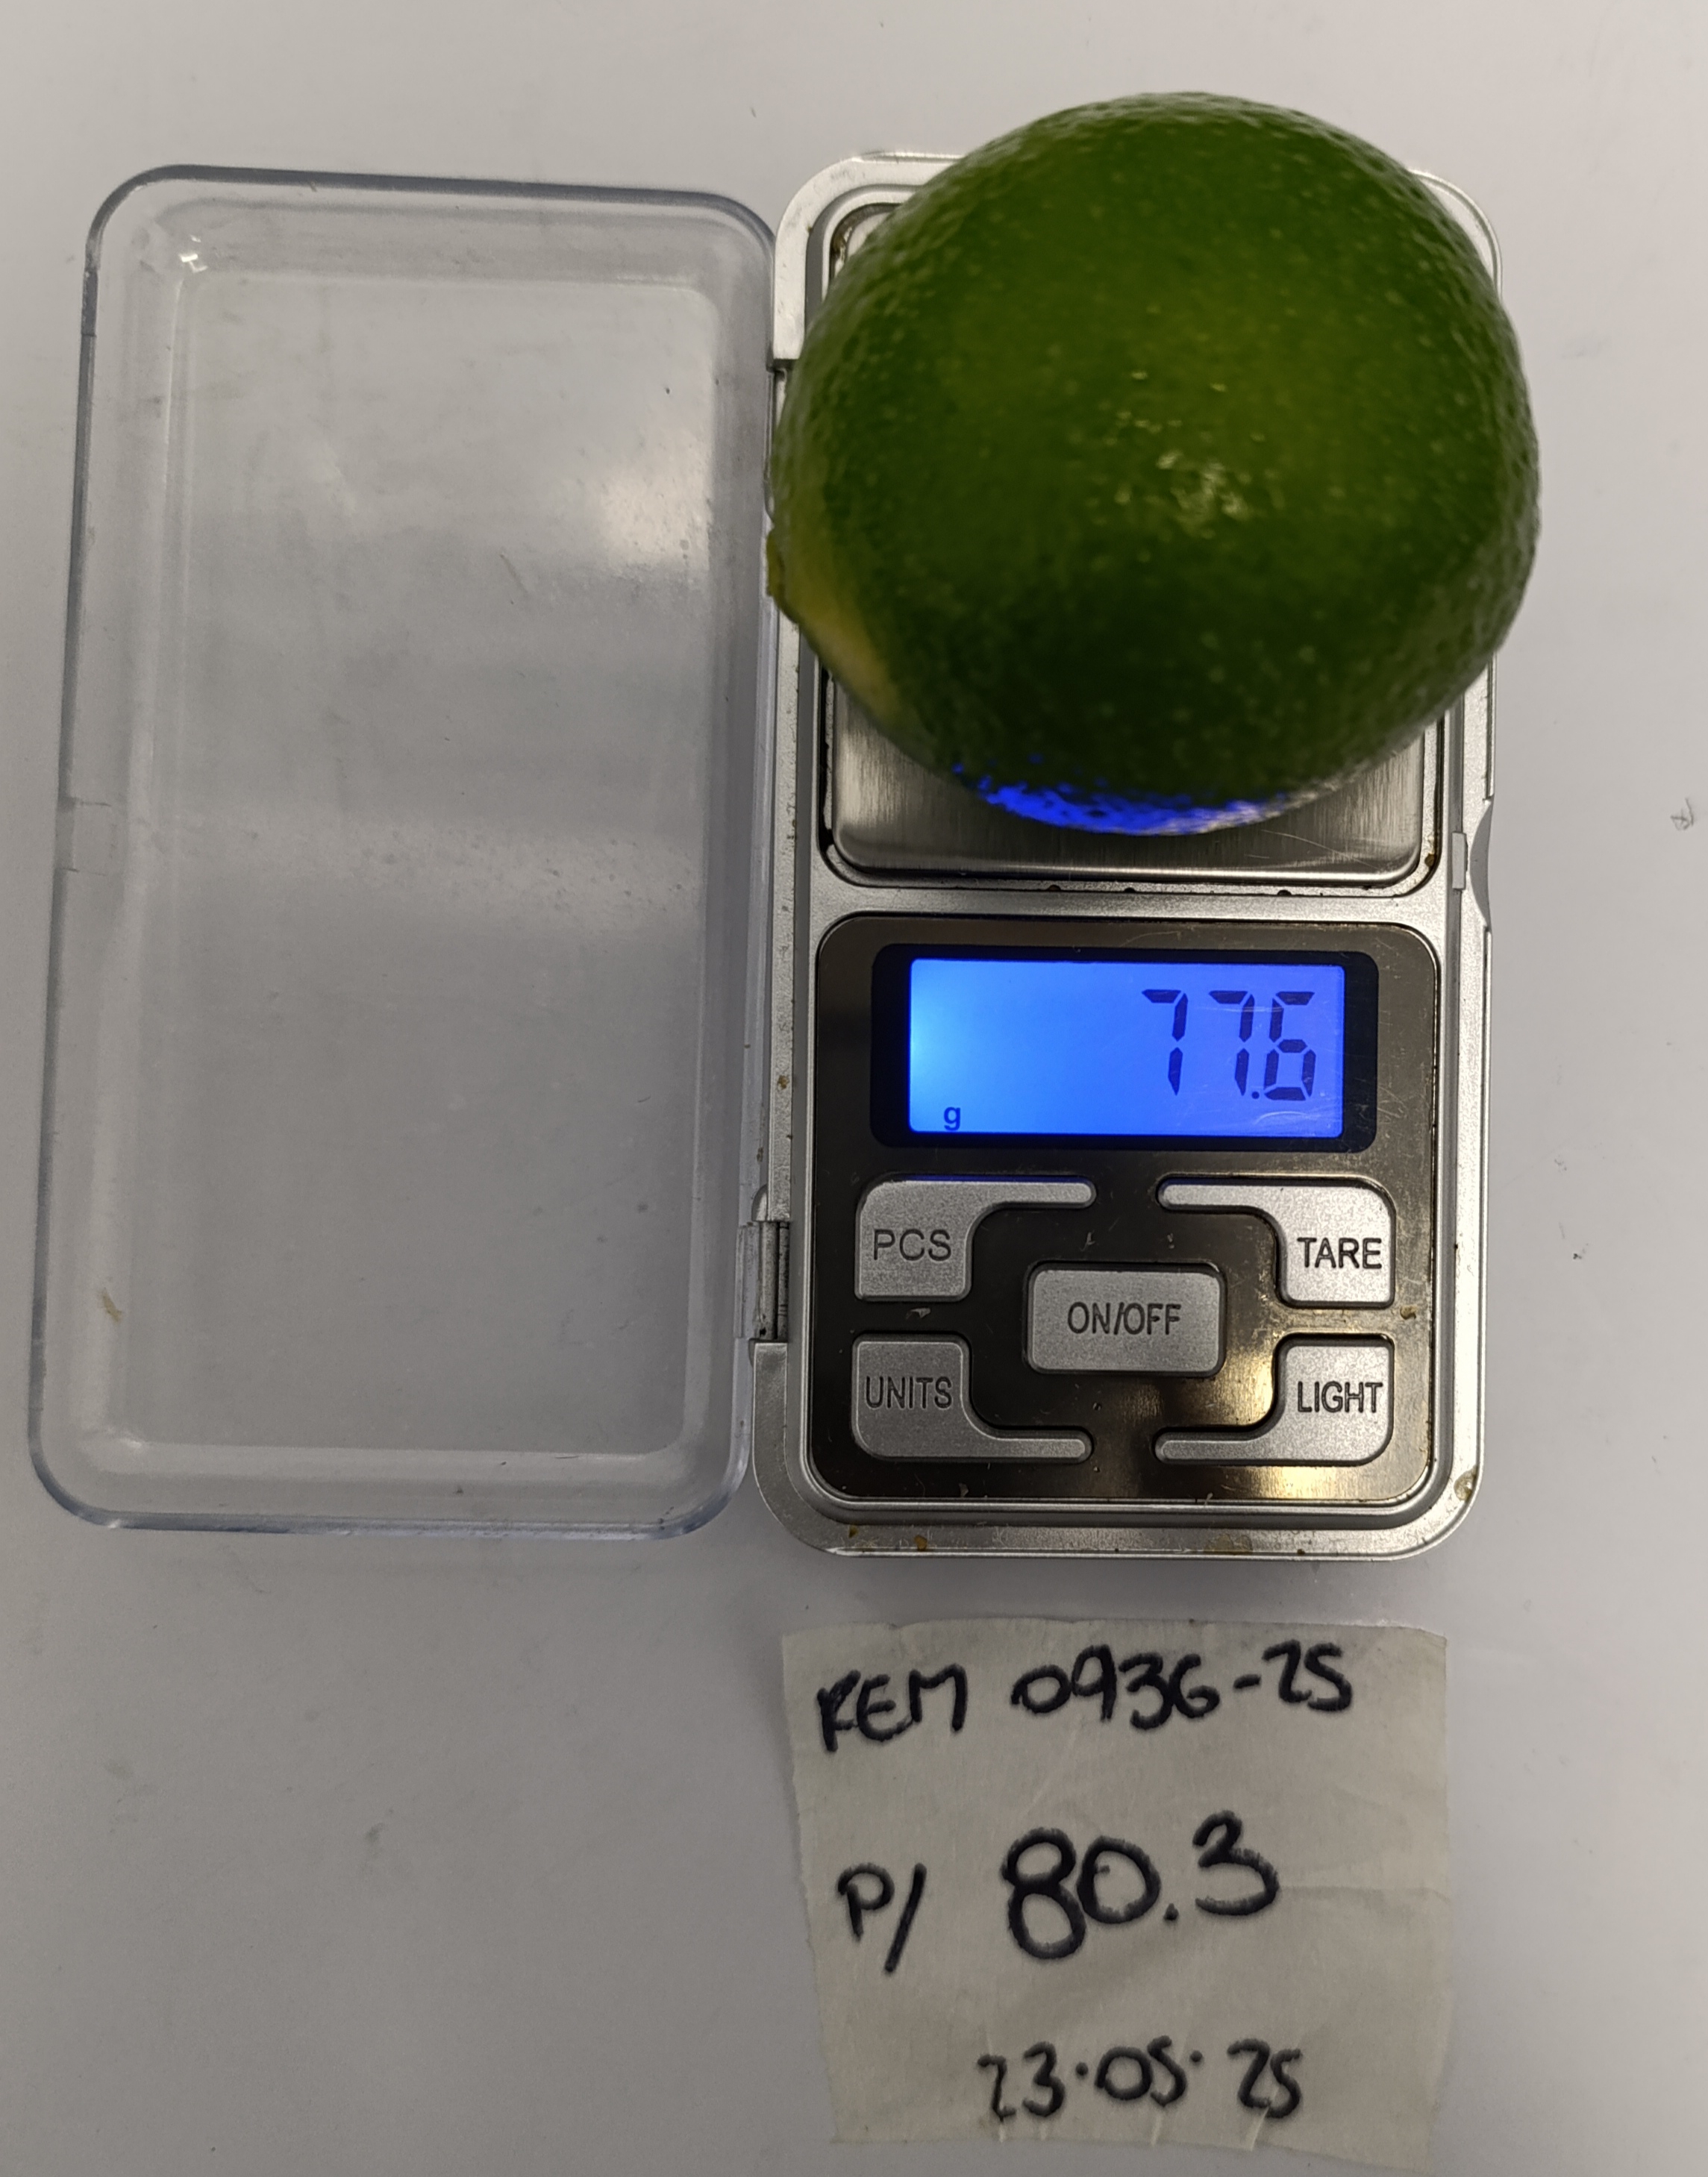 77.6
g
PCS
TARE
ON/OFF
UNITS
LIGHT
REM 0936-25
P/ 80.3
23.05.25